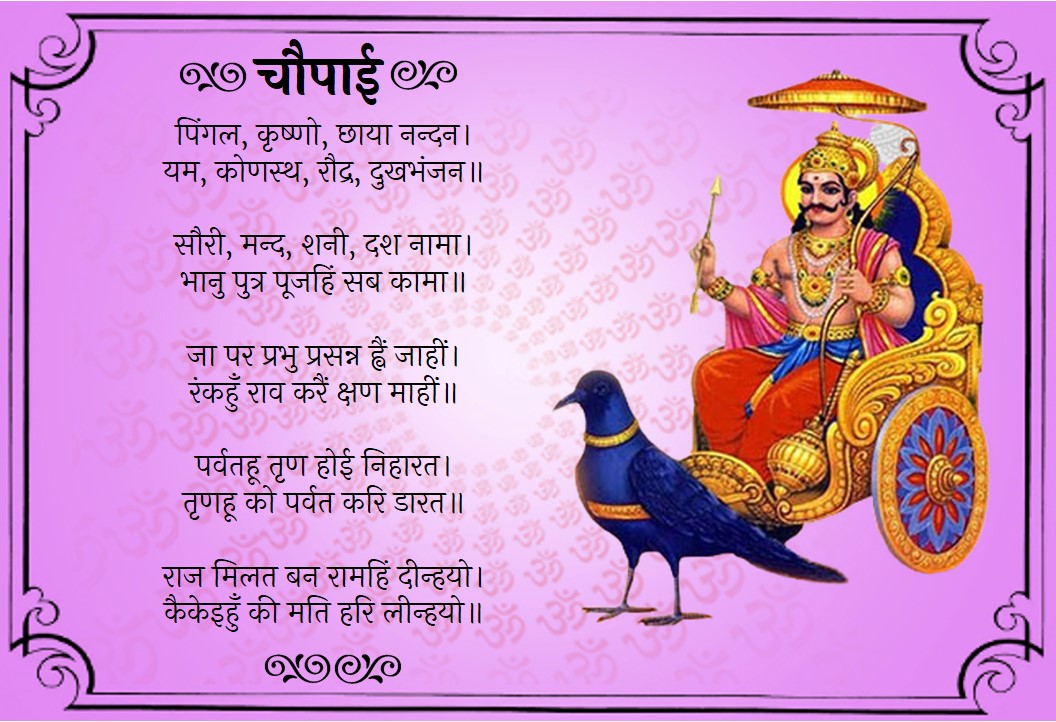 चौपाई
पिंगल, कृष्णो, छाया नन्दन।
यम, कोणस्थ, रौद्र, दुखभंजन॥
सौरी, मन्द, शनी, दश नामा।
भानु पुत्र पूजहिं सब कामा॥
जा पर प्रभु प्रसन्न ह्वैं जाहीं।
रंकहुँ राव करैं क्षण माहीं॥
पर्वतहू तृण होई निहारत।
तृणहू को पर्वत करि डारत॥
राज मिलत बन रामहिं दीन्हयो।
कैकेइहुँ की मति हरि लीन्हयो॥